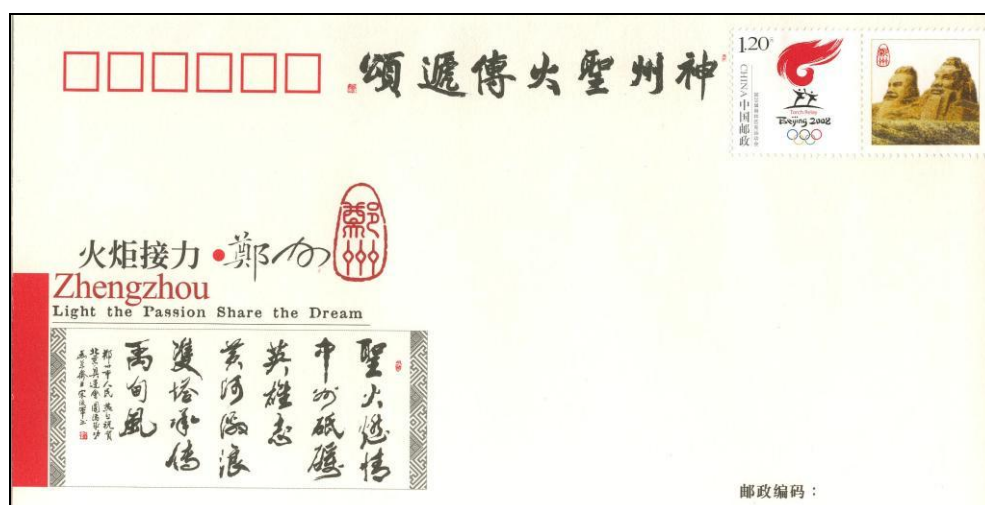 神州聖火傳遞頌
1.20元
CHINA 中国邮政
Torch Relay
Beijing 2008
火炬接力·鄭州
鄭州
Zhengzhou
Light the Passion Share the Dream
聖火燃情
中州砥礪
英雄志
黄河激浪
雙塔承傳
禹甸風
邮政编码：